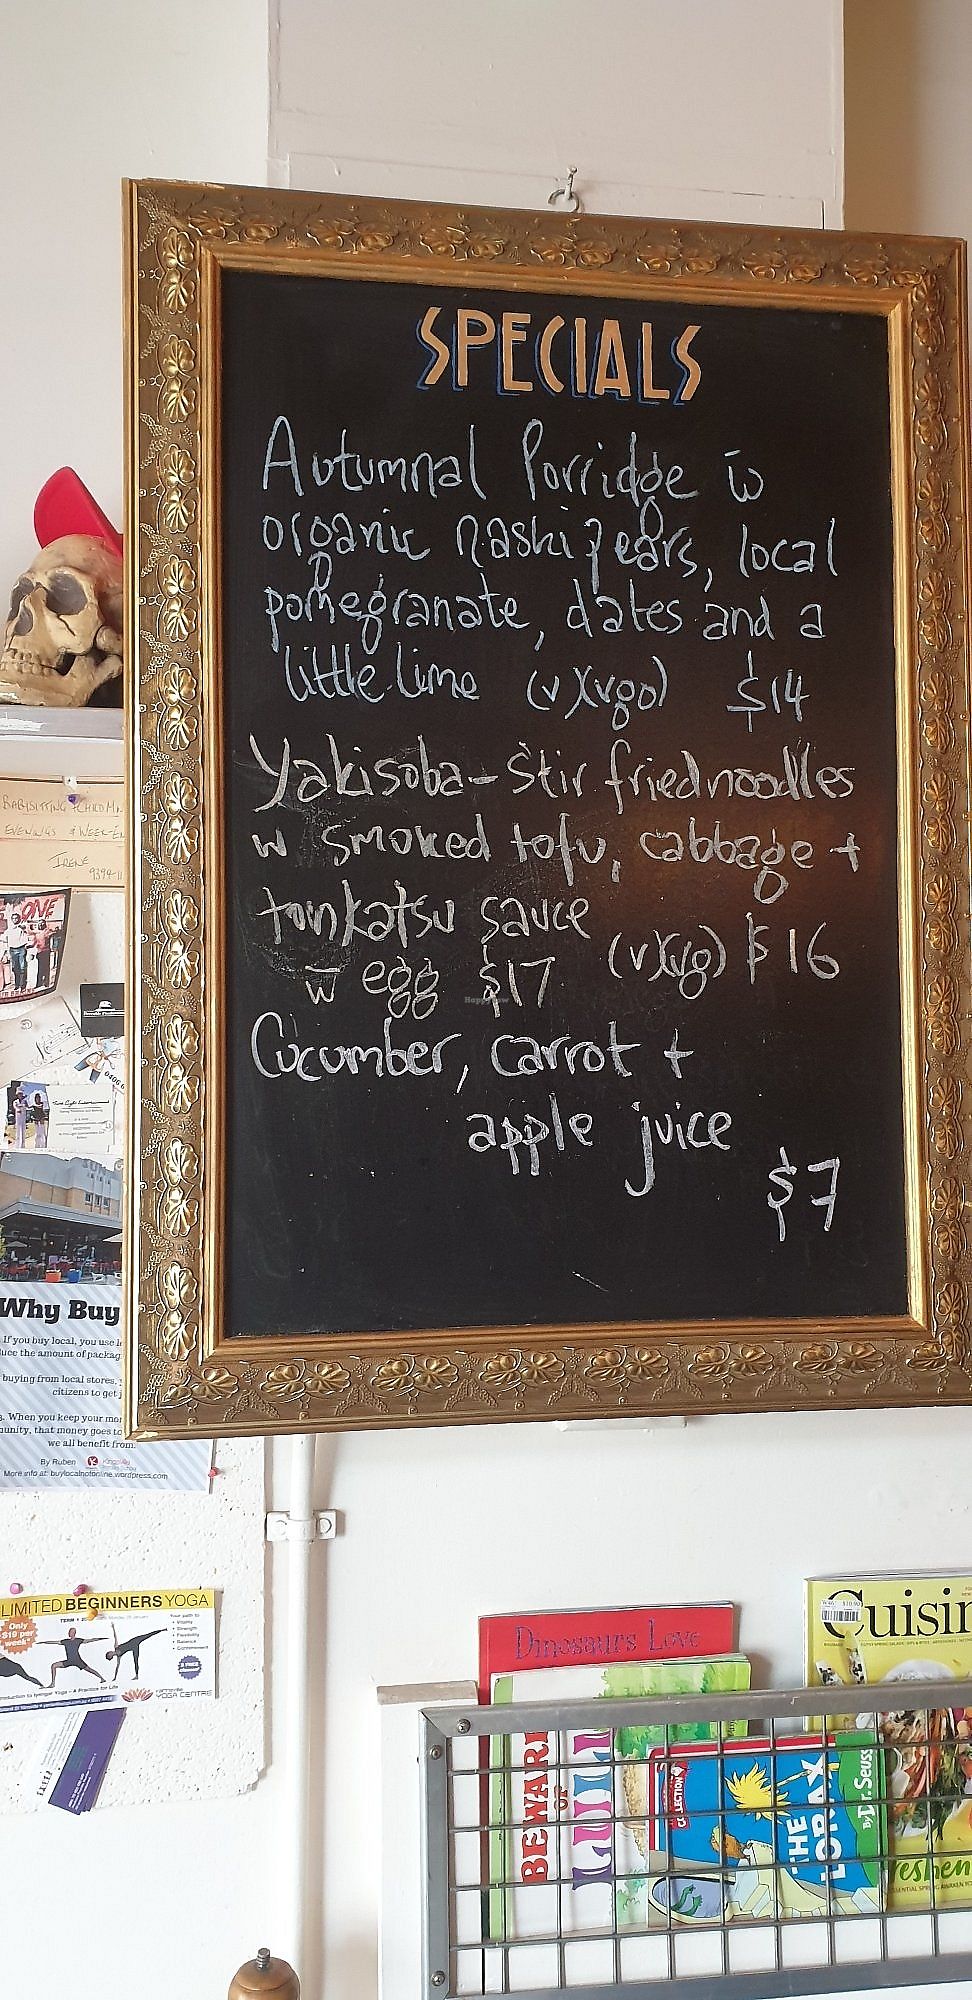 SPECIALS
Autumnal Porridge w
organic nashi pears, local
pomegranate, dates and a
little lime (v)(vgo) $14
Yakisoba - Stir fried noodles
w smoked tofu, cabbage +
tonkatsu sauce
(v)(vg) $16
w egg $17
Cucumber, carrot +
apple juice
$7
HappyCow
BABYSITTING + CHILD
EVENINGS & WEEK-EN
IRENE
ONE
Why Buy
If you buy local, you use
uce the amount of packag
buying from local stores,
citizens to get
s. When you keep your mo
unity, that money goes to
we all benefit from.
By Ruben
More info at: buylocalnotonline.wordpress.com
LIMITED BEGINNERS YOGA
TERM 1
Only
$19 per
week*
Your path to
Vitality
Strength
Flexibility
Balance
Contentment
roduction to Iyengar Yoga – A Practice for Life
YOGA CENTRE
Dinosaurs Love
Cuisin
BEWARE
OF
COLLECTION
THE
LORAX
By Dr. Seuss
reshen